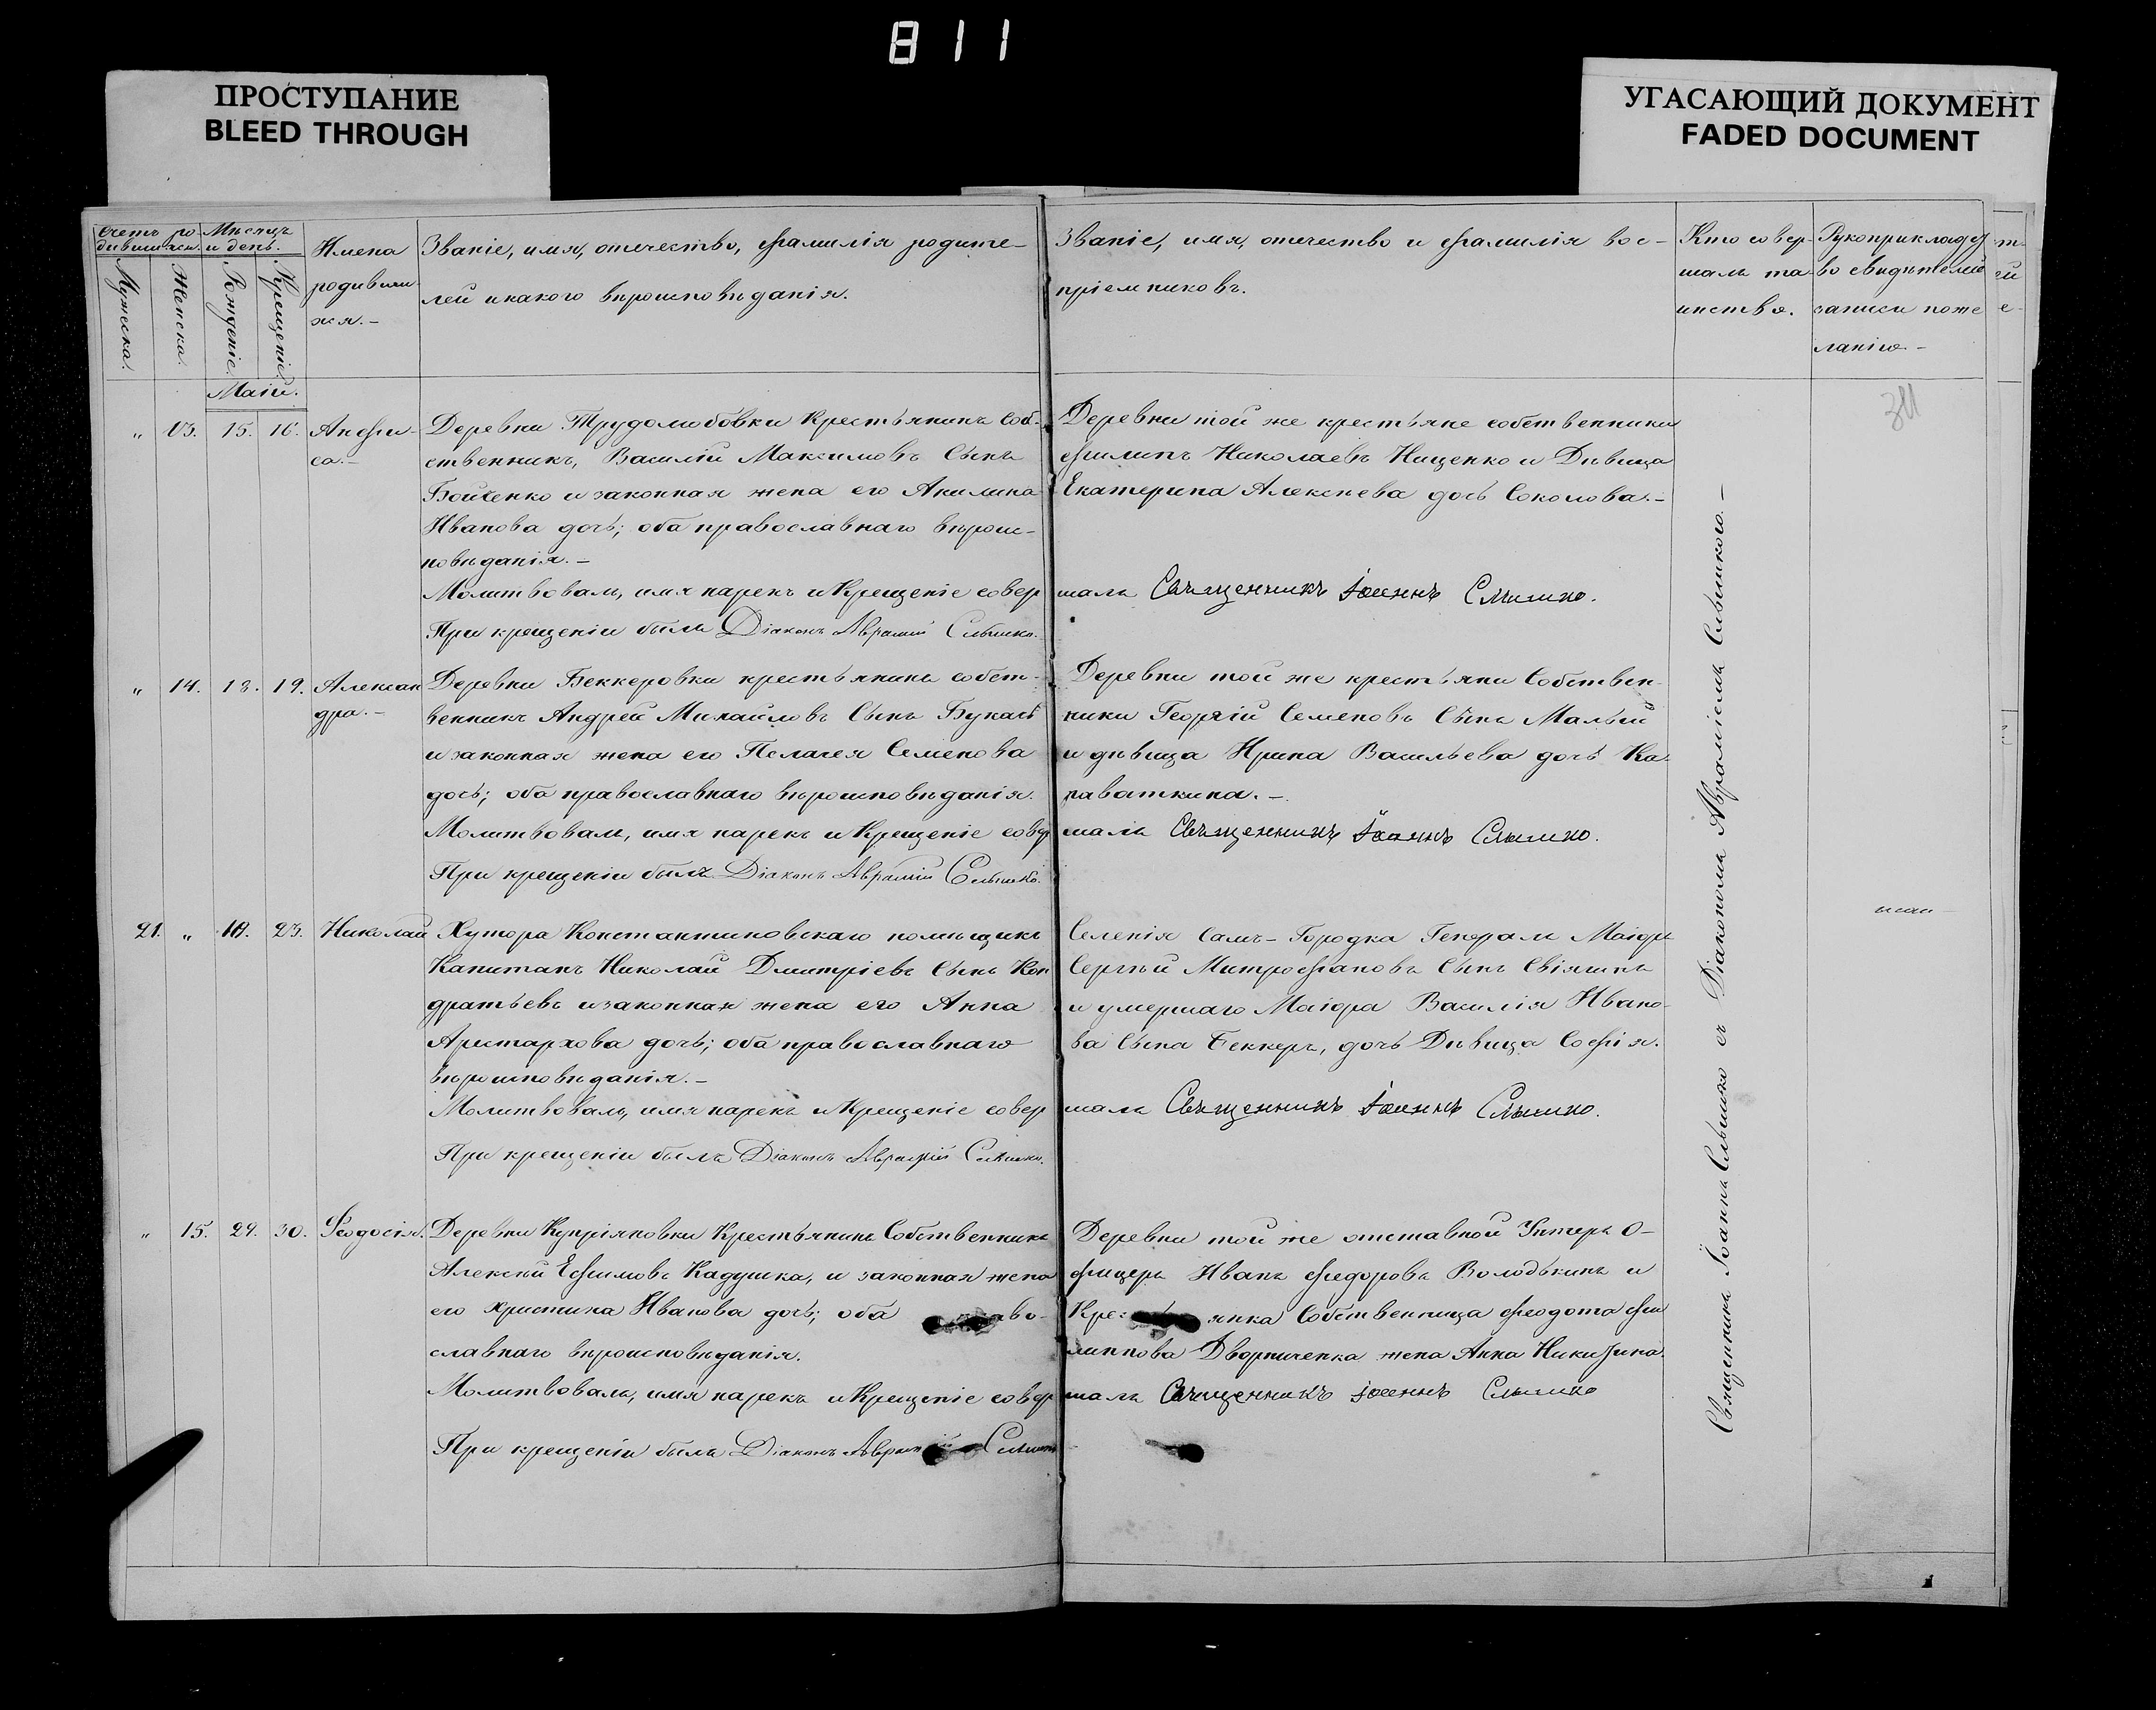 811
ПРОСТУПАНИЕ
BLEED THROUGH
УГАСАЮЩИЙ ДОКУМЕНТ
FADED DOCUMENT
Счетъ ро-
дившихся.
Мѣсяцъ
и день.
Мужеска.
Женска.
Рожденіе.
Крещеніе.
Имена
родивши
хся.-
Званіе, имя, отечество, фамилія родите-
лей и какого вѣроисповѣданія.
Званіе, имя, отечество и фамилія вос-
пріемниковъ.
Кто совер-
шалъ та-
инство.
Рукоприкладст
во свидѣтелей
записи по же
ланію.-
Маій.
„ 13. 15. 16. Анфи-
са.-
Деревни Трудолюбовки Крестьянинъ соб-
ственникъ, Василій Максимовъ Сынъ
Бойченко и законная жена его Акилина
Иванова дочь; оба православнаго вѣроис-
повѣданія.-
Молитвовалъ, имя нарекъ и Крещеніе совер
При крещеніи былъ Діаконъ Аврамій Сѣмшко.
Деревни той же крестьяне собственники
Филипъ Николаевъ Нищенко и Дѣвица
Екатерина Алексѣева дочь Соколова.-
шалъ Священникъ Іоаннъ
„ 14. 18. 19. Алексан
дра.-
Деревни Беккеровки крестьянинъ собст-
венникъ Андрей Михайловъ Сынъ Букачъ
и законная жена его Пелагея Семенова
дочь; оба православнаго вѣроисповѣданія.
Молитвовалъ, имя нарекъ и Крещеніе совер
При крещеніи былъ Діаконъ Аврамій
Деревни той же крестьяни Собствен-
ники Георгій Семеновъ Сынъ Малый
и дѣвица Ирина Васильева дочь Ка-
раваткина.-
шалъ Священникъ Іоаннъ
21. „ 18. 23. Николай
Хутора Константиновскаго помѣщикъ
Капитанъ Николай Дмитріевъ Сынъ Кон
дратьевъ и законная жена его Анна
Аристархова дочь; оба православнаго
вѣроисповѣданія.-
Молитвовалъ, имя нарекъ и Крещеніе совер
При крещеніи былъ Діаконъ Аврамій
Селенія Самъ-Городка Генералъ Маіоръ
Сергѣй Митрофановъ Сынъ
и умершаго Маіора Василія Ивано-
ва Сына Беккеръ, дочь Дѣвица Софія.
шалъ Священникъ Іоаннъ
„ 15. 29. 30. Феодосія.
Деревни Купріяновки Крестьянинъ Собственникъ
Алексѣй Ефимовъ Кадушка, и законная жена
его Христина Иванова дочь; оба
славнаго вѣроисповѣданія.
Молитвовалъ, имя нарекъ и Крещеніе совер
При крещеніи былъ Діаконъ
Деревни той же отставной Унтеръ О-
фицеръ Иванъ Федоровъ Володькинъ и
Кре янка Собственница Феодота Фи
липпова Дворниченка жена Анна Никифина.
шалъ Священникъ Іоаннъ
Священникъ Іоаннъ съ Діакономъ Авраміемъ